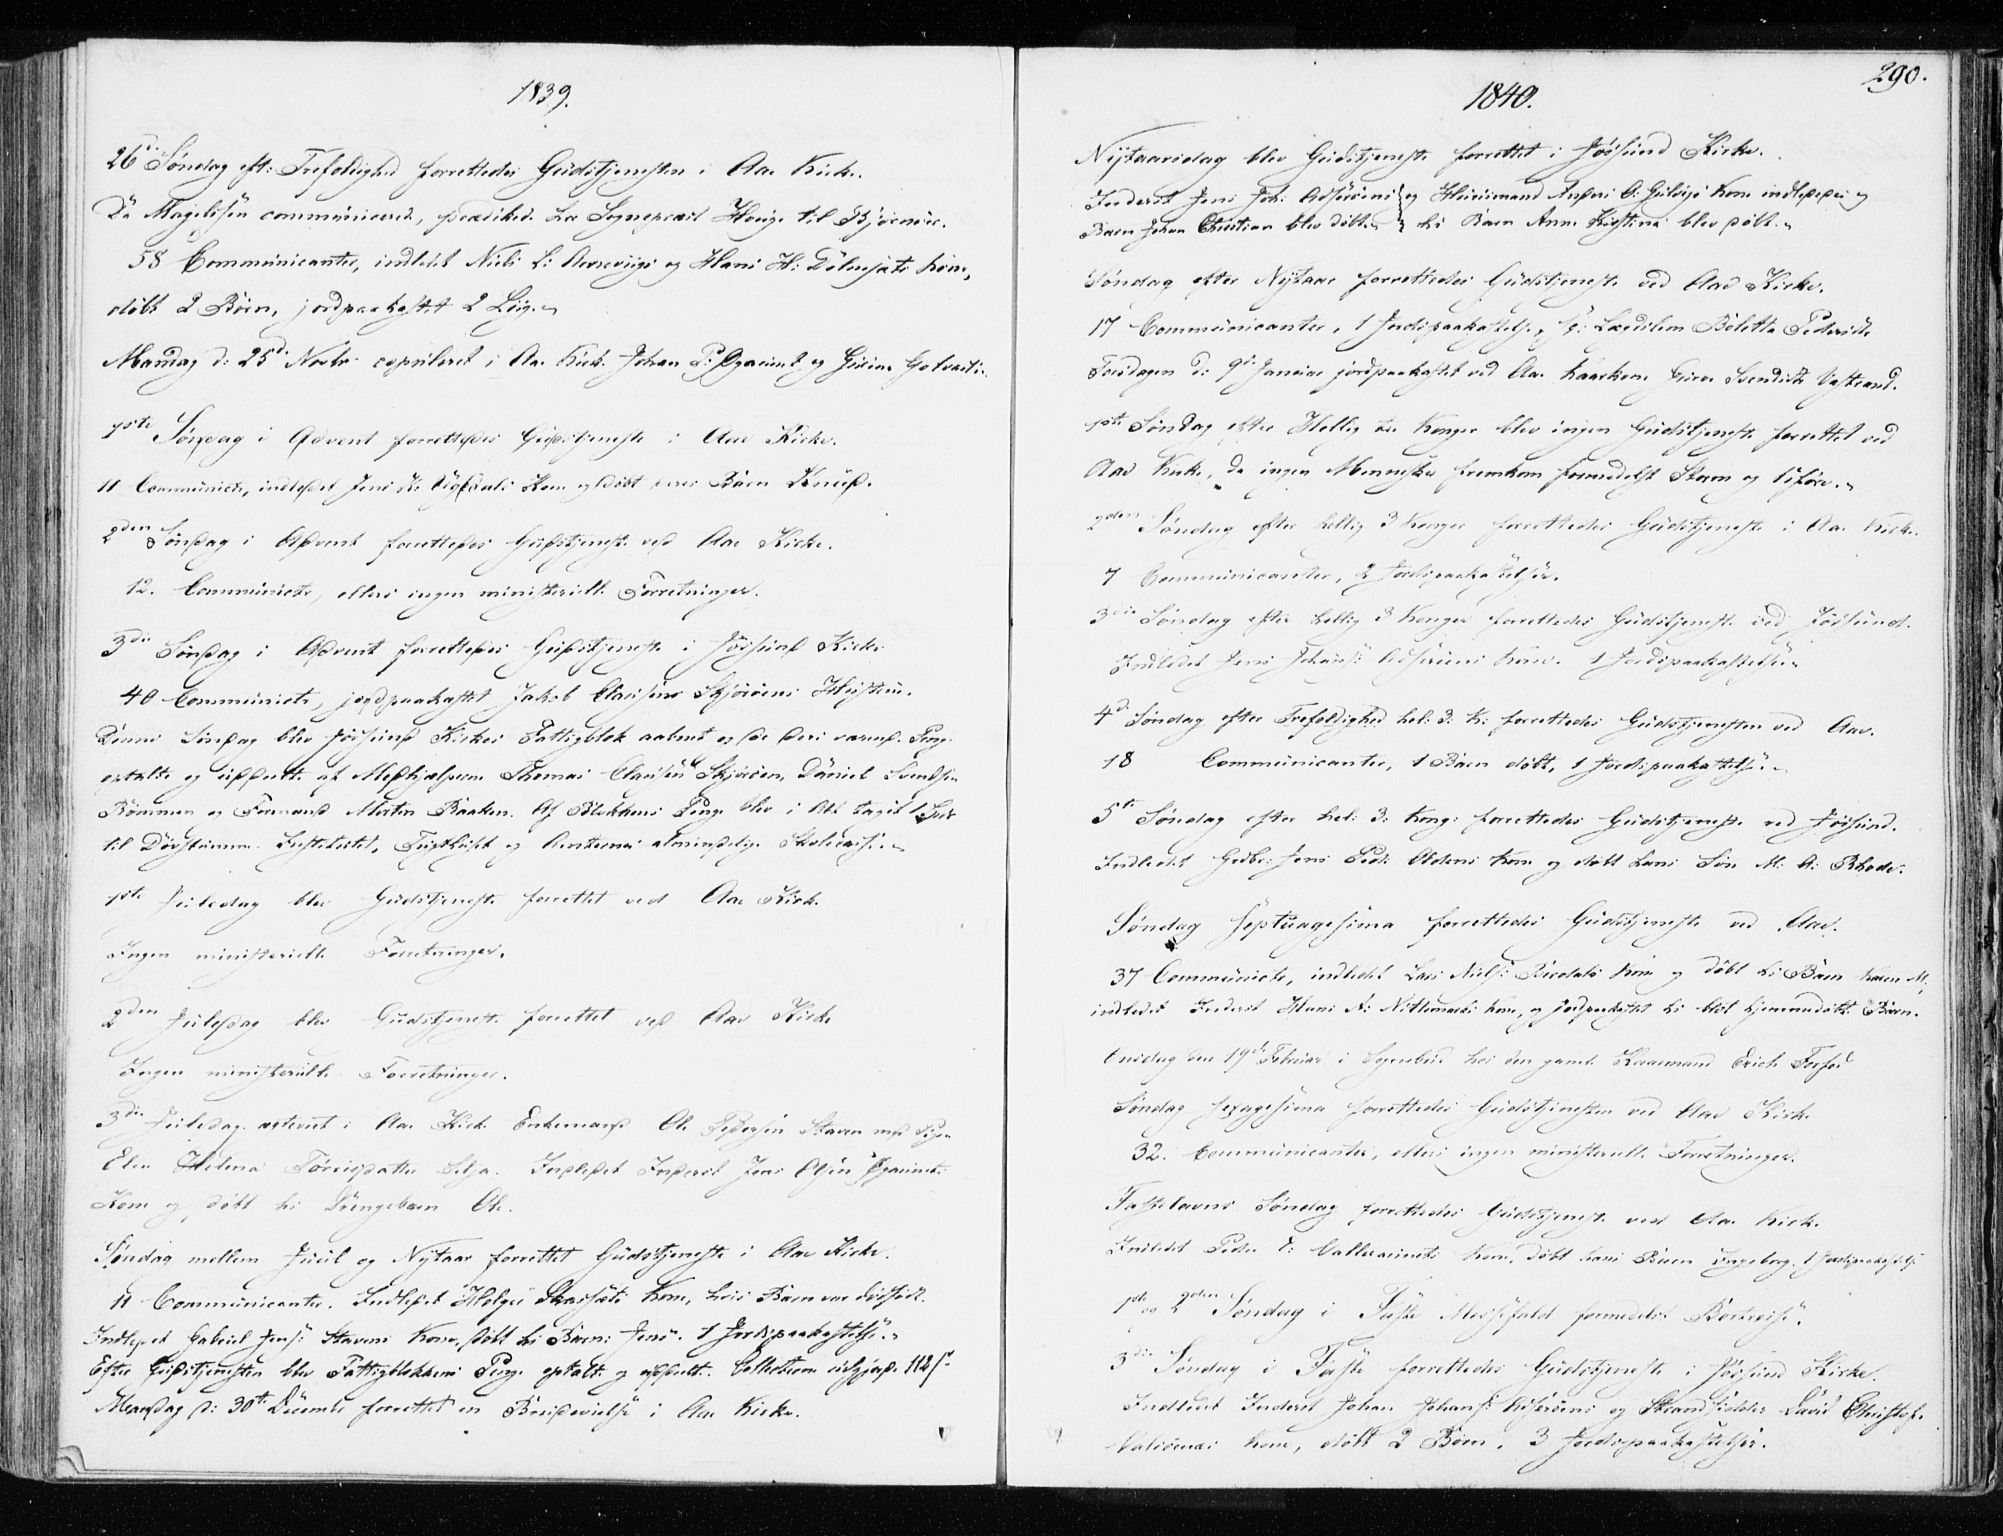 1839.
26de Søndag eft: Trefoldighed forrettedes Gudstjenesten i Aae Kirke.
Da Magelssen communicerede, prædikede Hr Sognepræst Horige til Bjørnør.
58 Communicanter, indledt Niels L: Arnevigs og Hans H: Kone,
døbt 2 Børn, jordpaakastet 2 Liig.
Mandag d: 25de Novbr copuleret i Aae Kirke Johan P: og
1ste Søndag i Advent forrettedes Gudstjeneste i Aae Kirke.
11 Communicte, indledet Jens Kone og døbt deres Barn Knud.
2den Søndag i Advent forrettedes Gudstjeneste ved Aae Kirke.
12. Communicte, ellers ingen ministerielle Forretninger.
3die Søndag i Advent forrettedes Gudstjeneste i Jøssund Kirke
40 Communicte, jordpaakastet Jakob Clausen Skjørøens Hustru.
Denne Søndag blev Jøssund Kirkes Fattigblok aabnet og de deri værende Penge
optalte og uddeelte af Medhjælperne Thomas Clausen Skjørøen, Daniel Svendsen
og Formand Morten Baaken. Af Blokkens Penge blev i Alt taget
til Døvstumme Institutet, Tugthuset og Amternes almindelige Skolecasse.
1ste Juledag blev Gudstjeneste forrettet ved Aae Kirke.
Ingen ministerielle Forretninger.
2den Juledag blev Gudstjeneste forrettet ved Aae Kirke
Ingen ministerielle Forretninger.
3die Juledag i Aae Kirke Enkemand Ole Pedersen Staven med Pigen
Elen Helena Selja. Indledet Inderst Jens Olsen
Kone og døbt hs Drengebarn Ole.
Søndag mellem Juul og Nytaar forrettet Gudstjeneste i Aae Kirke.
11 Communicanter. Indledet Holger Kone, hvis Barn var dødfødt.
Indledet Gabriel Jens: Stavens Kone, døbt hs Barn: Jens. 1 Jordspaakastelse.
Efter Gudstjenesten blev Fattigblokkens Penge optalt og uddeelt. 112 s
Mandag d: 30te Decembr forrettet en Brudevielse i Aae Kirke.
290.
1840.
Nytaarsdag blev Gudstjeneste forrettet i Jøssund Kirke.
Inderst Jens Joh: og Huusmand Anders O: Kone indledede og
Barn Johan Christian blev døbt. hs Barn Anne Kirstina blev døbt.
Søndag efter Nytaar forrettedes Gudstjeneste ved Aae Kirke.
17 Communicanter, 1 Jordspaakastelse, Boletta Pedersdtr
Torsdagen d: 9de Januar jordpaakastet ved Aae
1ste Søndag efter Hellig tre Konger blev ingen Gudstjeneste forrettet ved
Aae Kirke, da ingen Mennesker fremkom formedelst Storm og Uføre.
2den Søndag efter hellig 3 Konger forrettedes Gudstjeneste i Aae Kirke.
7 Communicanter, 2 Jordspaakastelser.
3die Søndag efter hellig 3 Konger forrettedes Gudstjeneste ved Jøssund.
Indledet Jens Johans: Kone. 1 Jordspaakastelse.
4de Søndag efter Trefoldighed hel: 3: K: forrettedes Gudstjenesten ved Aae.
18 Communicanter, 1 Barn døbt, 1 Jordspaakastelse.
5te Søndag efter hel: 3: Kong: forrettedes Gudstjeneste ved Jøssund.
Indledet Jens Ped: Kone og døbt hans Søn M: A: Rhode.
Søndag Septuagesima forrettedes Gudstjeneste ved Aae.
37 Communicte, indledet Lars Niels: Kone og døbt hs Barn Karen M.
indledet Inderst Hans A: Kone, og jordpaakastet hs hjemmedøbte Barn.
Onsdag den 19de Februar i Sognebud hos den gamle Erich
Søndag Sexagesima forrettedes Gudstjenesten ved Aae Kirke
32. Communicanter, ellers ingen ministerielle Forretninger.
Fastelavns Søndag forrettedes Gudstjeneste ved Aae Kirke.
Indledet Peder E: Kone, døbt hans Barn Ingeborg. 1 Jordspaakastelse
1ste og 2den Søndag i Faste Messefald formedelst
3die Søndag i Faste forrettedes Gudstjeneste i Jøssund Kirke.
Indledet Inderst Johan Johans: og Strandsidder David Christof.
Kone, døbt 2 Børn. 3 Jordspaakastelser.